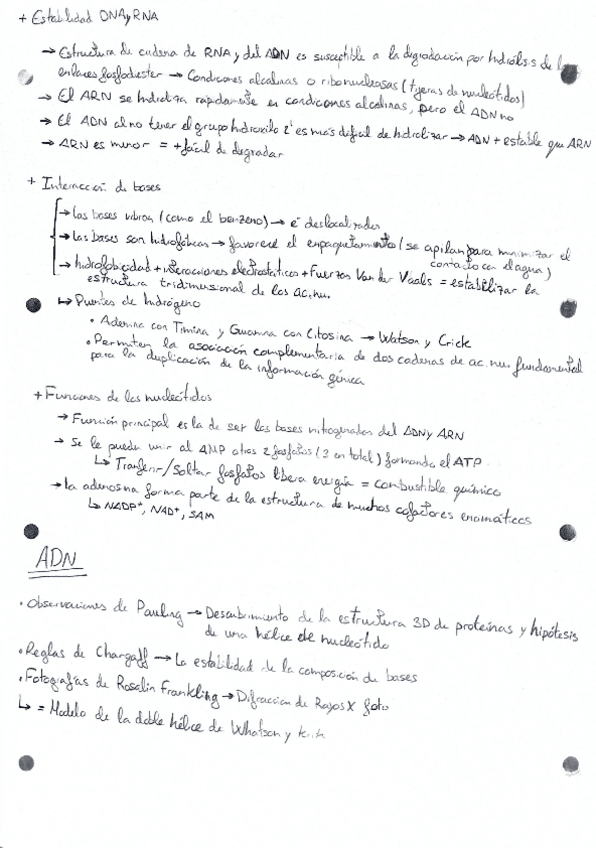 + Estabilidad DNA y RNA
→ Estructura de cadena de RNA y del ADN es susceptible a la degradación por hidrólisis de los
enlaces fosfodiester → Condiciones alcalinas o ribonucleosas (tijeras de nucleótidos)
→ El ARN se hidroliza rapidamente en condiciones alcalinas, pero el ADN no
→ El ADN al no tener el grupo hidroxilo 2' es más dificil de hidrolizar → ADN + estable que ARN
→ ARN es menor = + fácil de degradar
+ Interacción de bases
→ Las bases vibran (como el benzeno) → e⁻ deslocalizados
→ Las bases son hidrofóbicas → favorece el empaquetamiento (se apilan para minimizar el
contacto con el agua)
→ hidrofobicidad + interacciones electrostáticas + Fuerzas Van der Vaals = estabilizar la
estructura tridimensional de los ac. nu.
↳ Puentes de hidrógeno
• Adenina con Timina y Guanina con Citosina → Watson y Crick
• Permiten la asociación complementaria de dos cadenas de ac. nu. fundamental
para la duplicación de la información génica
+ Funciones de los nucleótidos
→ Función principal es la de ser las bases nitogenadas del ADN y ARN
→ Se le puede unir al AMP otros 2 fosfatos (3 en total) formando el ATP
↳ Transferir/Soltar fosfatos libera energía = combustible químico
→ La adenosina forma parte de la estructura de muchos cofactores enzimáticos
↳ NADP⁺, NAD⁺, SAM
ADN
• Observaciones de Pauling → Descubrimiento de la estructura 3D de proteínas y hipótesis
de una hélice de nucleótido
• Reglas de Chargaff → La estabilidad de la composición de bases
• Fotografías de Rosalin Frankling → Difracción de Rayos X foto
↳ = Modelo de la doble hélice de Whatson y